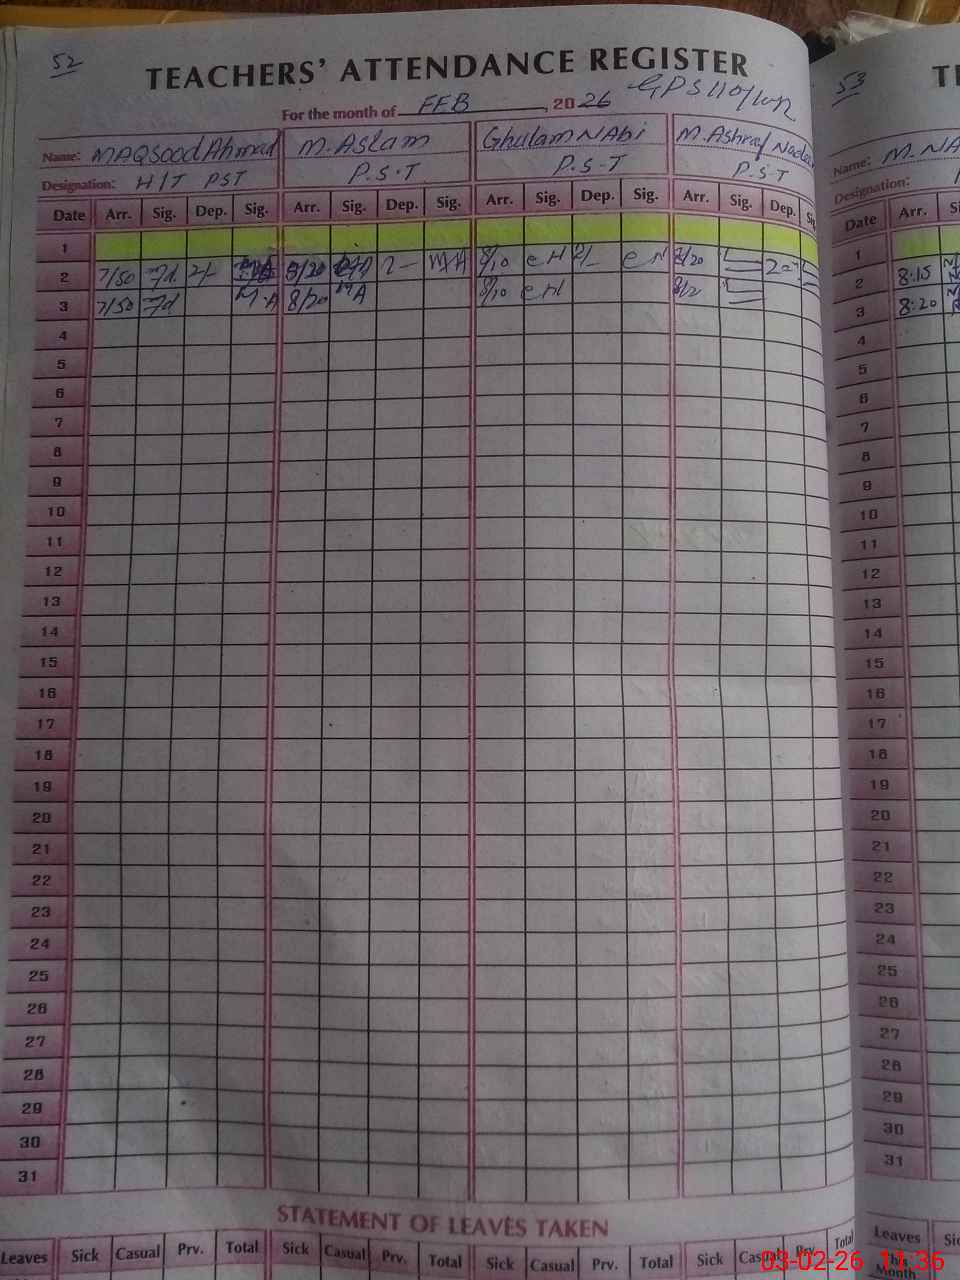 52
TEACHERS' ATTENDANCE REGISTER
For the month of FEB, 2026
Name: MAQSood Ahmad M. Aslam Ghulam NAbi M. Ashraf
Designation: H/T PST P.S.T P.S-T P.S-T
Date Arr. Sig. Dep. Sig. Arr. Sig. Dep. Sig. Arr. Sig. Dep. Sig. Arr. Sig. Dep.
1
2 7/50 2/- 8/20 8/10 2/- 8/20
3 7/50 M.A 8/20 MA 8/10
4
5
6
7
8
9
10
11
12
13
14
15
16
17
18
19
20
21
22
23
24
25
26
27
28
29
30
31
STATEMENT OF LEAVES TAKEN
Leaves Sick Casual Prv. Total Sick Casual Prv. Total Sick Casual Prv. Total Sick Casual Prv. Total
53
Name: M.
Designation:
Date Arr.
1
2 8:15
3 8:20
4
5
6
7
8
9
10
11
12
13
14
15
16
17
18
19
20
21
22
23
24
25
26
27
28
29
30
31
Leaves
Month
03-02-26 11:36